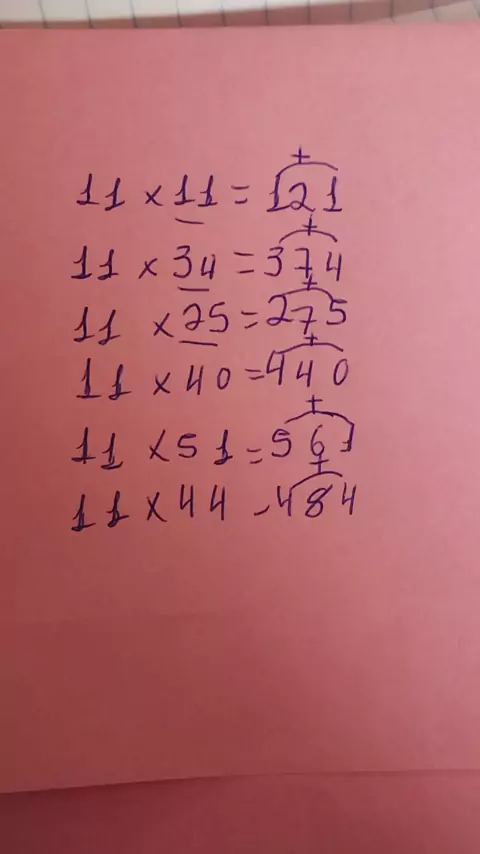 11 × 11 = 121
11 × 34 = 374
11 × 25 = 275
11 × 40 = 440
11 × 51 = 561
11 × 44 - 484